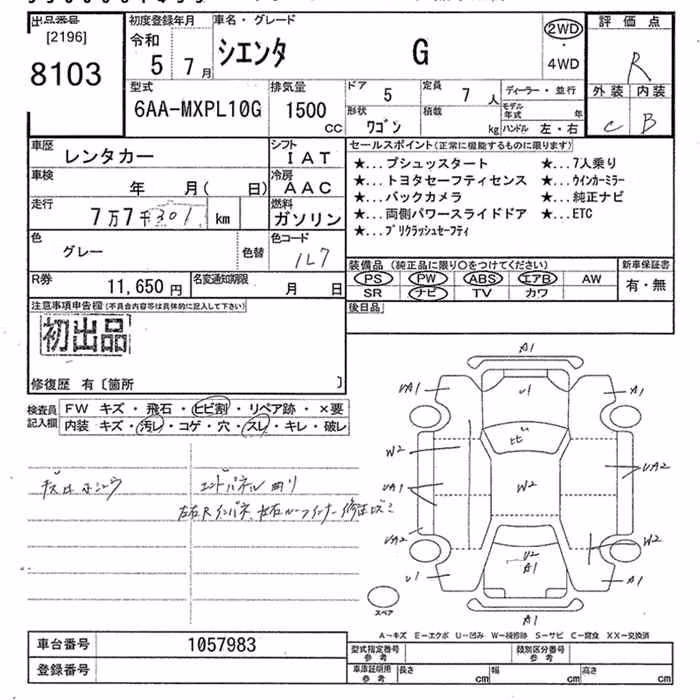 出品番号 初度登録年月 車名・グレード 評価点
[2196] 令和 シエンタ G 2WD
8103 5 7月 ・ 4WD R
型式 排気量 ドア 5 定員 7 人 ディーラー・並行 外装 内装
6AA-MXPL10G 1500 CC 形状 ワゴン 積載 kg モデル年式 年 C B
ハンドル 左・右
車歴 レンタカー シフト IAT セールスポイント(正常に機能するものに限ります)
★...プシュッスタート ★...7人乗り
車検 年 月( 日) 冷房 AAC ★...トヨタセーフティセンス ★...ウインカーミラー
★...バックカメラ ★...純正ナビ
走行 7万7千301 km 燃料 ガソリン ★...両側パワースライドドア ★...ETC
★...プリクラッシュセーフティ
色 グレー 色替 色コード 1L7
装備品(純正品に限り○をつけてください) 新車保証書
R券 11,650円 名変通知期限 月 日 PS PW ABS エアB AW 有・無
SR ナビ TV カワ
注意事項申告欄(不具合内容等は具体的に記入して下さい) 後日品
初出品
修復歴 有〔箇所 〕
検査員記入欄 FW キズ・飛石・ヒビ割・リペア跡・×要
内装 キズ・汚レ・コゲ・穴・スレ・キレ・破レ
エンドパネル曲り
A1
UA1 U1 A1
W2 U
ヒビ
UA1 W2 UA2
UA2 W2
U1 U2 A1
A1
A1
スペア
A-キズ E-エクボ U-凹み W-補修跡 S-サビ C-腐食 XX-交換済
車台番号 1057983 型式指定番号 参考 類別区分番号 参考
登録番号 車庫証明用 参考 長さ cm 幅 cm 高さ cm